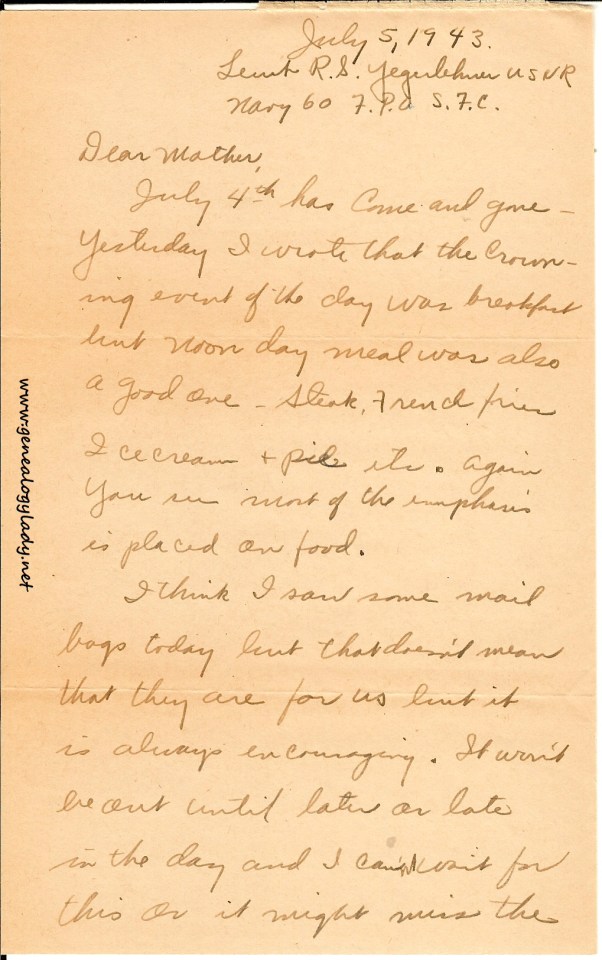 July 5, 1943.
Lieut R.S. Yegerlehner USNR
Navy 60 F.P.O S.F.C.
Dear Mother,
July 4th has come and gone –
Yesterday I wrote that the crown-
ing event of the day was breakfast
but noon day meal was also
a good one – Steak, French fries
Ice cream + pie etc. Again
you see most of the emphasis
is placed on food.
I think I saw some mail
bags today but that doesn't mean
that they are for us but it
is always encouraging. It won't
be out until later or late
in the day and I can't wait for
this or it might miss the
www.genealogylady.net